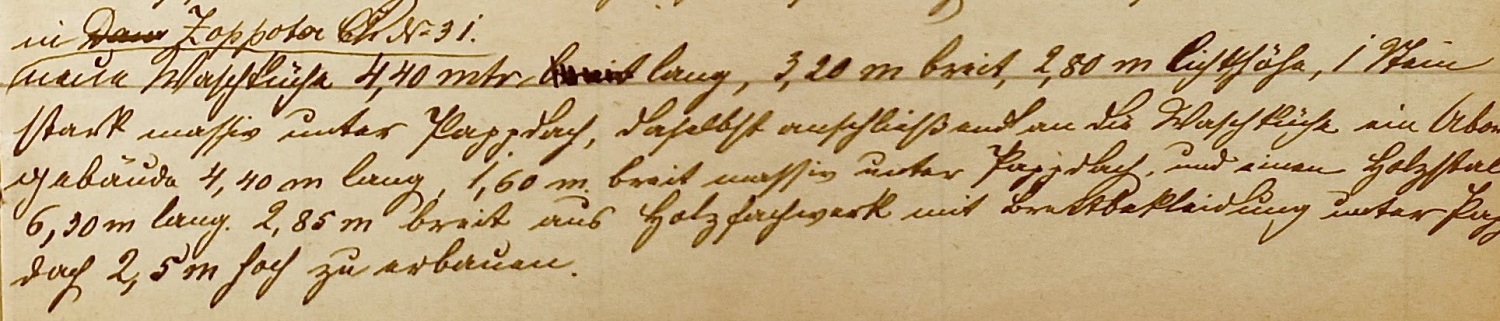 in Zoppoter Str No 31.
neue Waschküche 4,40 mtr lang, 3,20 m breit, 2,80 m Lichthöhe, 1 Stein
stark massiv unter Pappdach, daselbst anschließend an die Waschküche ein Abort
gebäude 4,40 m lang, 1,60 m. breit massiv unter Pappdach, und einen Holzstall
6,30 m lang. 2,85 m breit aus Holzfachwerk mit Brettbekleidung unter Papp
dach 2,5 m hoch zu erbauen.